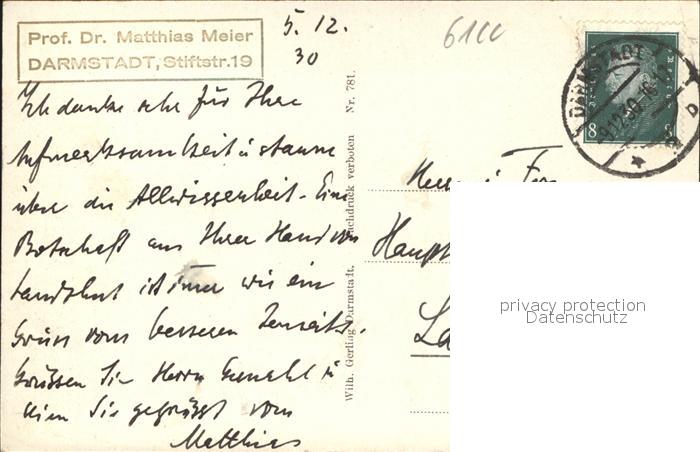 Prof. Dr. Matthias Meier
DARMSTADT, Stiftstr. 19
5. 12.
30
6100
Ich danke sehr für Ihre
Aufmerksamkeit u staune
über die Allwissenheit. Eine
Botschaft aus Ihrer Hand von
Landshut ist immer wie ein
Gruss vom besseren Jenseits.
Grüssen Sie Herrn Gemahl u
seien Sie gegrüsst vom
Matthias
Wilh. Gerling, Darmstadt. Nachdruck verboten Nr. 781.
DARMSTADT
8 8
Herrn u Fr
Haupt
La
privacy protection
Datenschutz